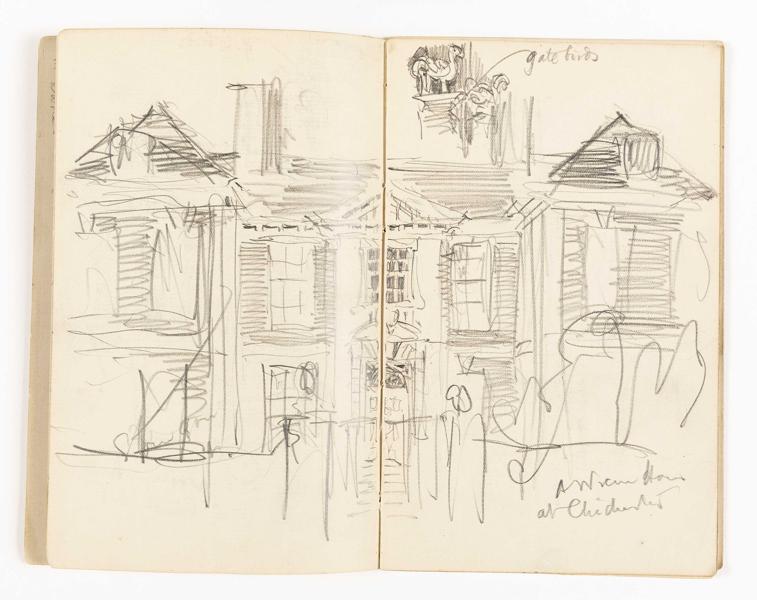 gate birds
A Wren House
at Chichester